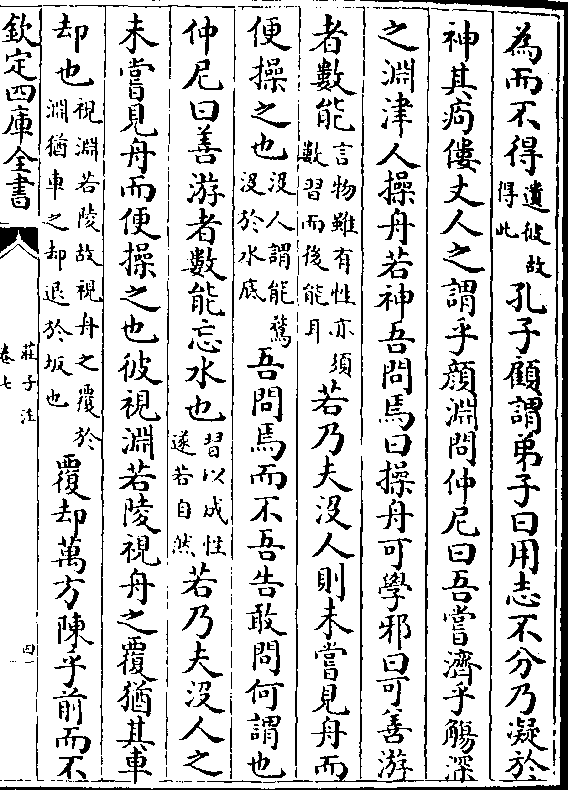 為而不得遺彼故得此孔子顧謂弟子曰用志不分乃凝於
神其痀僂丈人之謂乎顏淵問仲尼曰吾嘗濟乎觴深
之淵津人操舟若神吾問焉曰操舟可學邪曰可善游
者數能言物雖有性亦須數習而後能耳若乃夫沒人則未嘗見舟而
便操之也沒人謂能鶩沒於水底吾問焉而不吾告敢問何謂也
仲尼曰善游者數能忘水也習以成性遂若自然若乃夫沒人之
未嘗見舟而便操之也彼視淵若陵視舟之覆猶其車
却也視淵若陵故視舟之覆於淵猶車之却退於坂也覆却萬方陳乎前而不
欽定四庫全書
莊子注
卷七
四